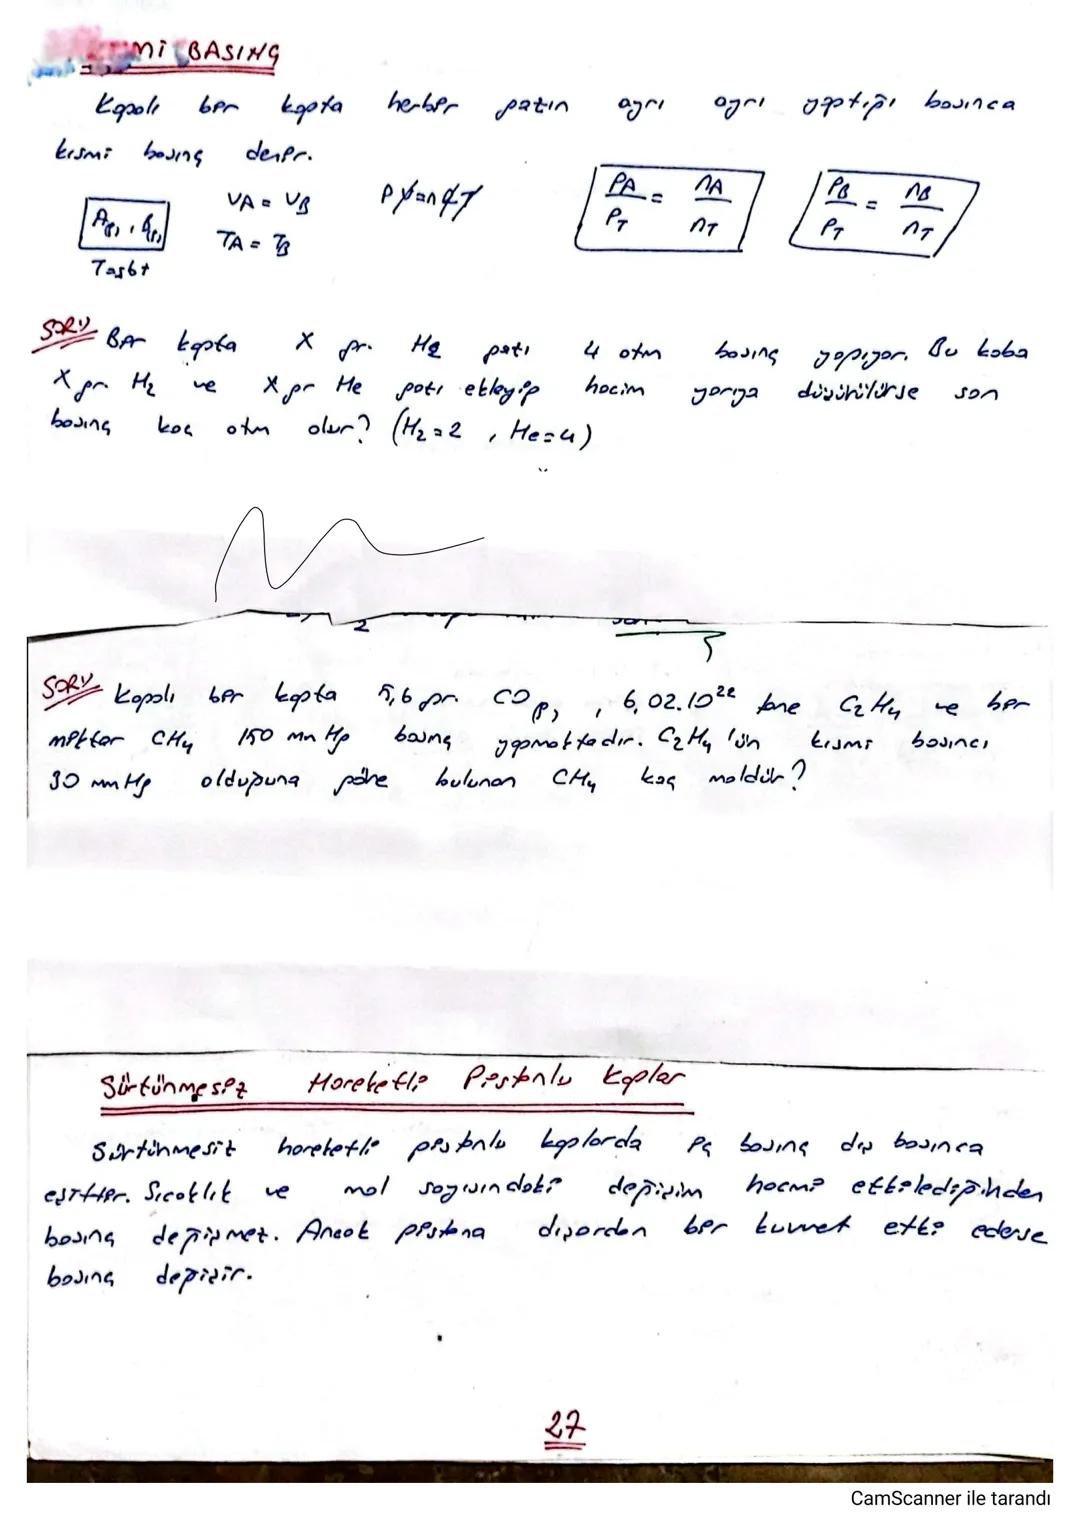 BASINÇ
Kapalı bir kapta herbir gazın ayrı ayrı yaptığı basınca
kısmi basınç denir.
A(g), B(g)
Tasbt
VA = VB
TA = TB
PV=nRT
PA/PT = nA/nT
PB/PT = nB/nT
SORU Bir kapta X gr. H2 gazı 4 atm basınç yapıyor. Bu kaba
X gr. H2 ve X gr He gazı ekleyip hacim yarıya düşürülürse son
basınç kaç atm olur? (H2=2, He=4)
SORU Kapalı bir kapta 5,6 gr. CO(g), 6,02.10²² tane C2H4 ve bir
miktar CH4 150 mm Hg basınç yapmaktadır. C2H4 'ün kısmi basıncı
30 mm Hg olduğuna göre bulunan CH4 kaç moldür?
Sürtünmesiz Hareketli Pistonlu Kaplar
Sürtünmesiz hareketli pistonlu kaplarda iç basınç dış basınca
eşittir. Sıcaklık ve mol sayısındaki değişim hacmi etkilediğinden
basınç değişmez. Ancak pistona dışardan bir kuvvet etki ederse
basınç değişir.
27
CamScanner ile tarandı